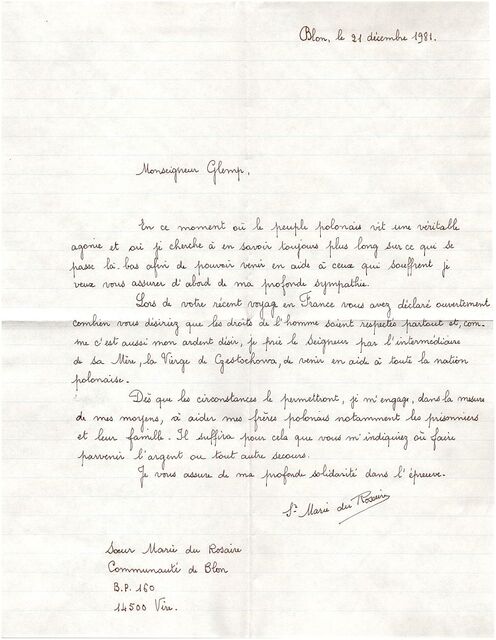 Blon, le 21 décembre 1981.
Monseigneur Glemp,
En ce moment où le peuple polonais vit une véritable
agonie et où je cherche à en savoir toujours plus long sur ce qui se
passe là-bas afin de pouvoir venir en aide à ceux qui souffrent je
veux vous assurer d'abord de ma profonde sympathie.
Lors de votre récent voyage en France vous avez déclaré ouvertement
combien vous désiriez que les droits de l'homme soient respectés partout et, com-
me c'est aussi mon ardent désir, je prie le Seigneur par l'intermédiaire
de sa Mère, la Vierge de Czestochowa, de venir en aide à toute la nation
polonaise.
Dès que les circonstances le permettront, je m'engage, dans la mesure
de mes moyens, à aider mes frères polonais notamment les prisonniers
et leur famille. Il suffira pour cela que vous m'indiquiez où faire
parvenir l'argent ou tout autre secours.
Je vous assure de ma profonde solidarité dans l'épreuve.
Sr Marie du Rosaire
Sœur Marie du Rosaire
Communauté de Blon
B.P. 160
14500 Vire.